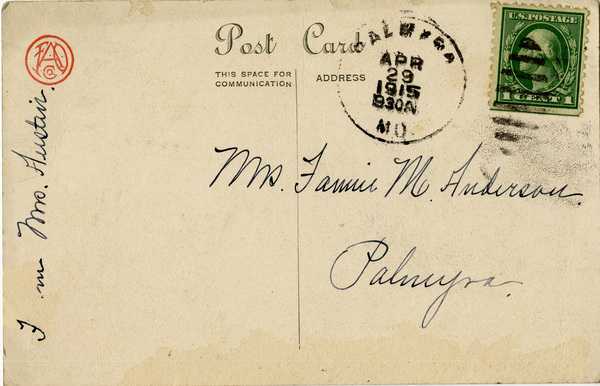 Post Card
THIS SPACE FOR
COMMUNICATION
ADDRESS
PALMYRA
APR
29
1915
930A
MO.
U.S. POSTAGE
1 CENT 1
Mrs. Fannie M. Anderson.
Palmyra.
Mrs. Austin.